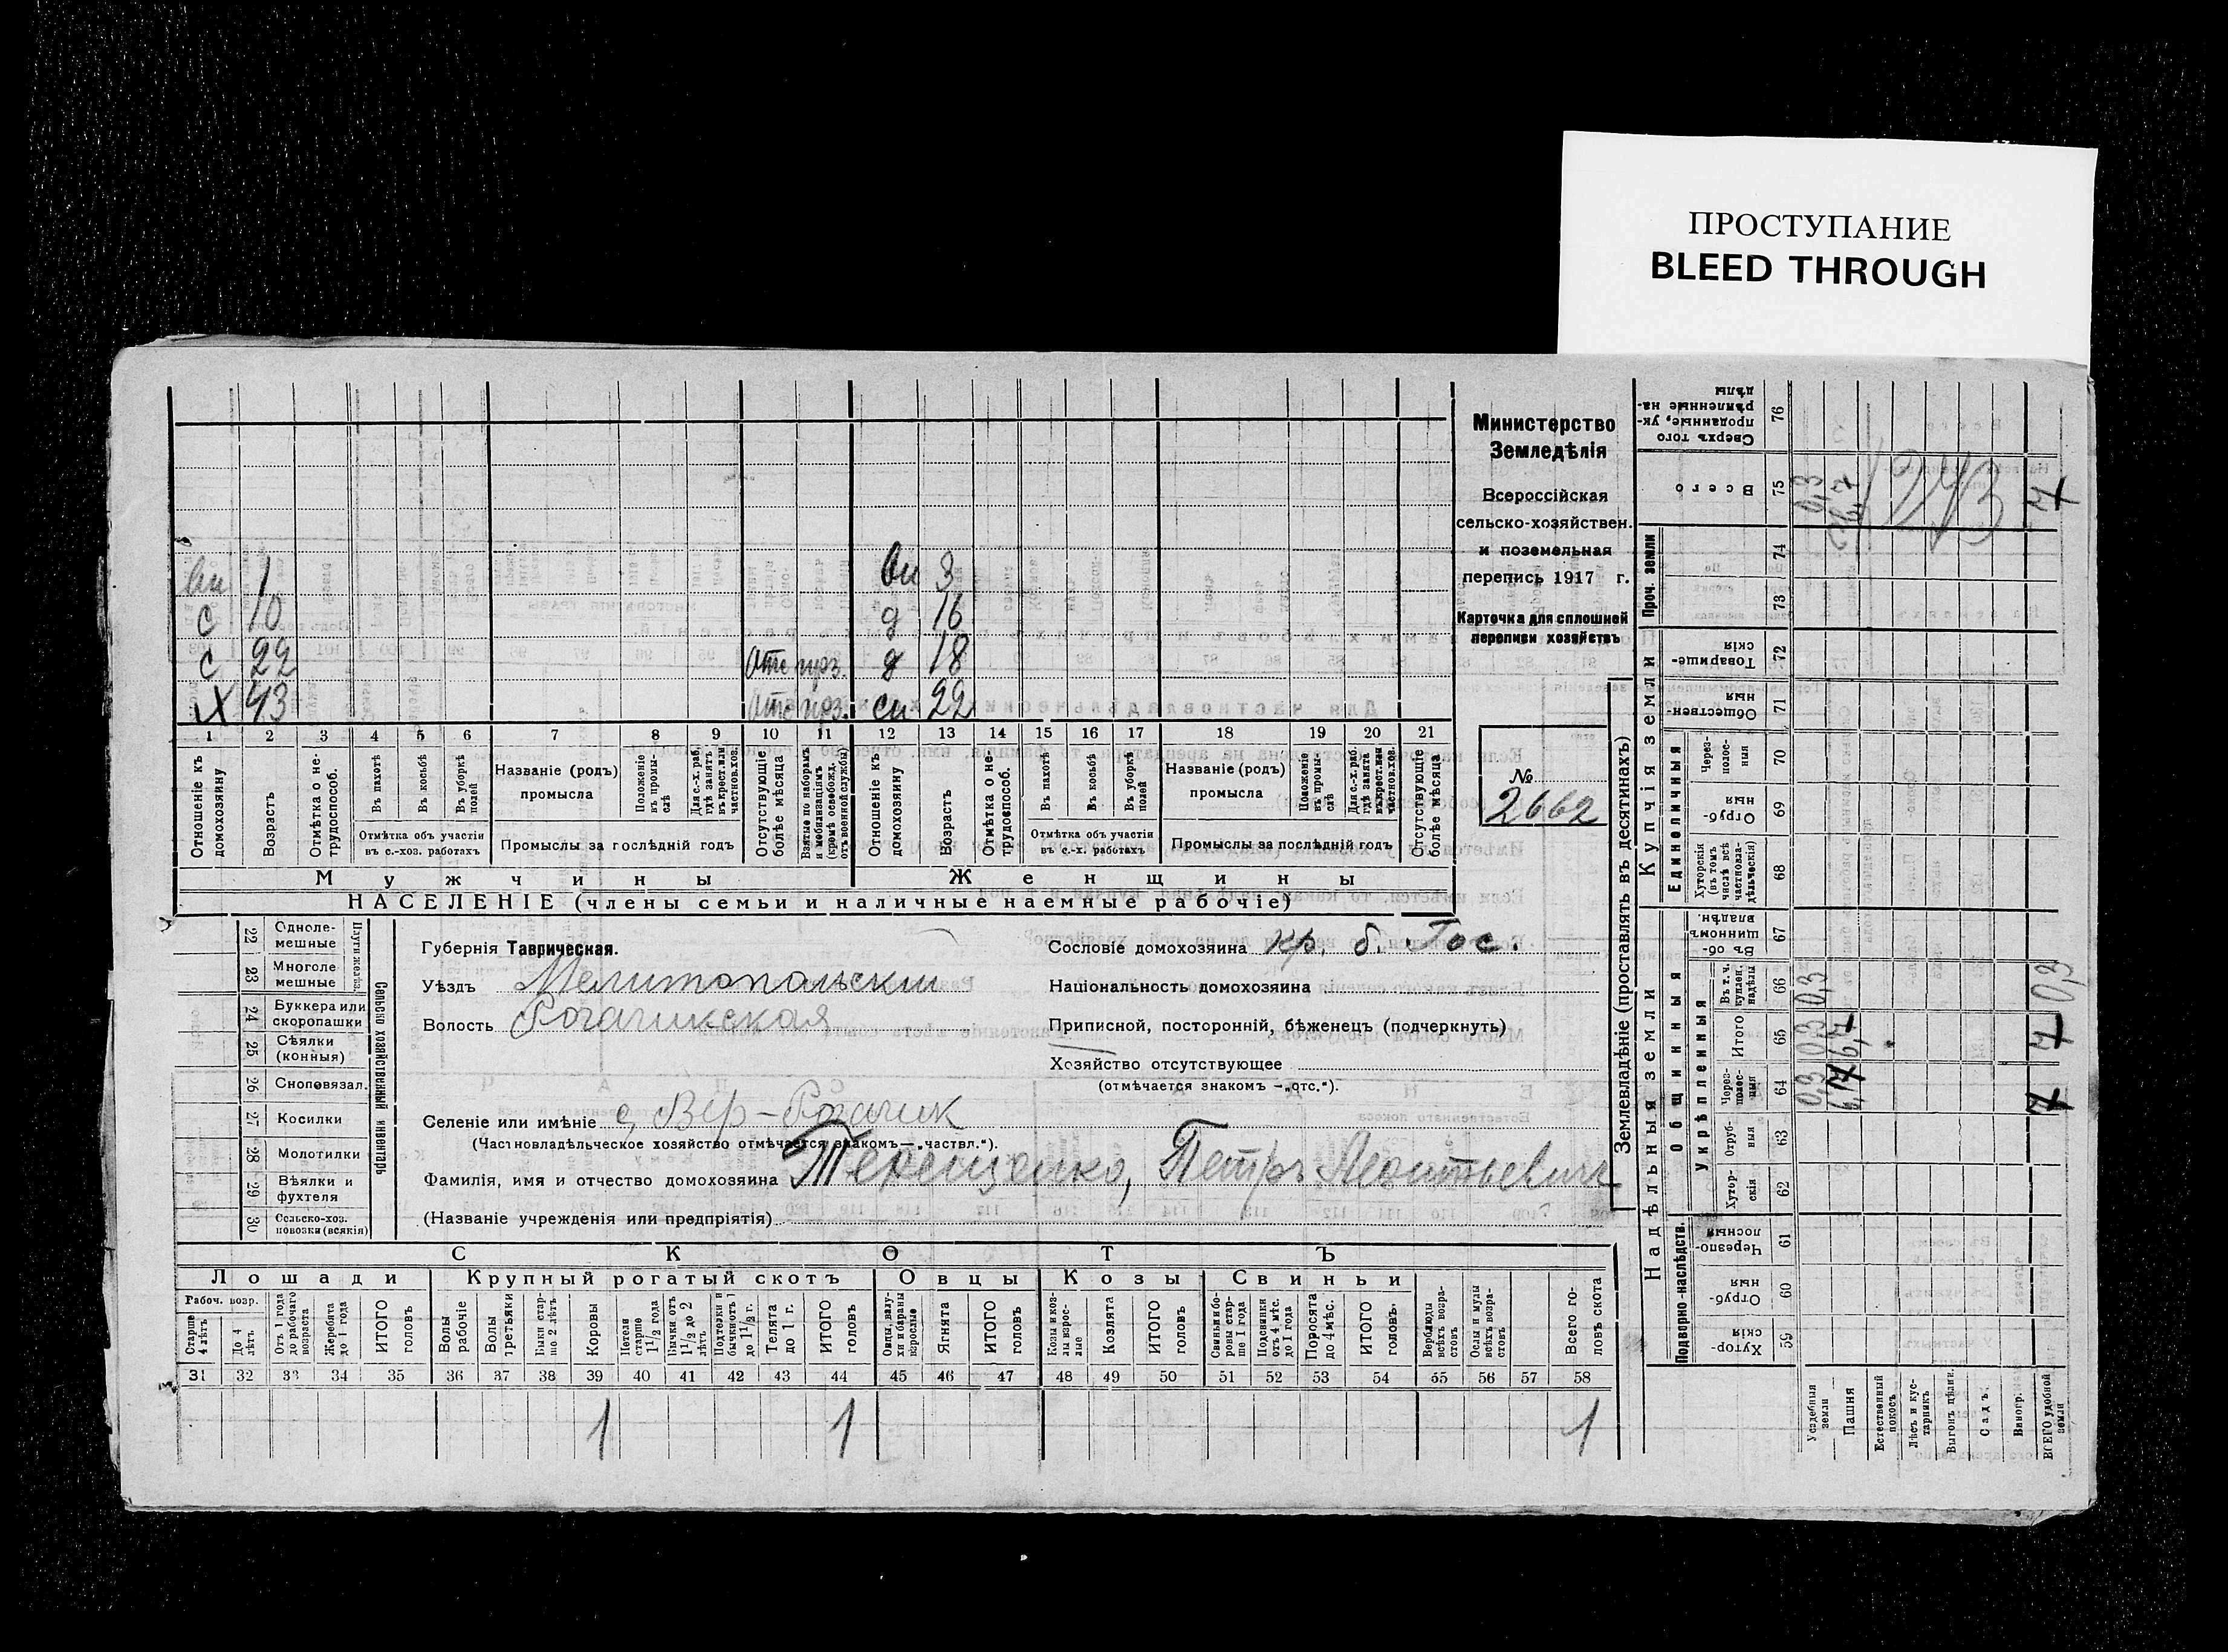 ПРОСТУПАНИЕ
BLEED THROUGH
Министерство
Земледѣлія
Всероссійская
сельско-хозяйствен.
и поземельная
перепись 1917 г.
Карточка для сплошней
переписи хозяйствъ
№
2662
вн 1
с 10
с 22 Отс
Х 43 Отс
вн 3
д 16
д 18
сн 22
1 2 3 4 5 6 7 8 9 10 11 12 13 14 15 16 17 18 19 20 21
Отношеніе къ домохозяину
Возрастъ
Отмѣтка о не-трудоспособ.
Въ пахотѣ
Въ косьбѣ
Въ уборкѣ полей
Отмѣтка объ участіи
въ с.-хоз. работахъ
Названіе (родъ)
промысла
Положеніе въ промы-слѣ
Для с.-х. раб. гдѣ занятъ въ крест. или частнов. хоз.
Промыслы за послѣдній годъ
Отсутствующіе болѣе мѣсяца
Взятые по наборамъ и мобилизаціямъ (кромѣ освобожд. отъ военной службы)
Отношеніе къ домохозяину
Возрастъ
Отмѣтка о не-трудоспособ.
Въ пахотѣ
Въ косьбѣ
Въ уборкѣ полей
Отмѣтка объ участіи
въ с.-х. работахъ
Названіе (родъ)
промысла
Положеніе въ промы-слѣ
Для с.-х. раб. гдѣ занята въ крест. или частнов. хоз.
Промыслы за послѣдній годъ
Отсутствующіе болѣе мѣсяца
Мужчины
Женщины
НАСЕЛЕНІЕ (члены семьи и наличные наемные рабочіе)
Сельско хозяйственный инвентарь
22 Одноле-мешные
23 Многоле мешные
24 Буккера или скоропашки
25 Сѣялки (конныя)
26 Сноповязал.
27 Косилки
28 Молотилки
29 Вѣялки и фухтеля
30 Сельско-хоз. повозки (всякія)
Губернія Таврическая.
Уѣздъ Мелитопольскій
Волость Рогачикская
Сословіе домохозяина кр. б. Гос.
Національность домохозяина
Приписной, посторонній, бѣженецъ (подчеркнуть)
Хозяйство отсутствующее
(отмѣчается знакомъ —„отс.“).
Селеніе или имѣніе с. Вер-Рогачик
(Частновладѣльческое хозяйство отмѣчается знакомъ—„частвл.“).
Фамилія, имя и отчество домохозяина Терещенко, Петръ Леонтьевич
(Названіе учрежденія или предпріятія)
СКОТЪ
Лошади
Крупный рогатый скотъ
Овцы
Козы
Свиньи
Рабоч. возр.
Старше 4 лѣтъ
До 4 лѣтъ
Отъ 1 года до рабочаго возраста
Жеребята до 1 года
ИТОГО головъ
Волы рабочіе
Волы третьяки
Быки стар-ше 2 лѣтъ
Коровы
Нетели старше 1 1/2 года
Бычки отъ 1 1/2 до 2 лѣтъ
Подтелки и бычки отъ 1 до 1 1/2 г.
Телята до 1 г.
ИТОГО головъ
Овцы, валу-хи и бараны взрослые
Ягнята
ИТОГО головъ
Козы и коз-лы взрос-лые
Козлята
ИТОГО головъ
Свиньи и бо-ровы стар-ше 1 года
Подсвинки отъ 4 мѣс. до 1 года
Поросята до 4 мѣс.
ИТОГО головъ.
Верблюды всѣхъ возра-стовъ
Ослы и мулы всѣхъ возра-стовъ
Всего го-ловъ скота
31 32 33 34 35 36 37 38 39 40 41 42 43 44 45 46 47 48 49 50 51 52 53 54 55 56 57 58
1 1 1
Землевладѣніе (проставлять въ десятинахъ)
Надѣльныя земли
Купчія земли
Проч. земли
Подворно-наслѣдств.
Общинныя
Укрѣпленныя
Единоличныя
Сверхъ того проданные, ук-рѣпленные на-дѣлы 76
Всего 75 0,3 7
74
73
Товарище-скія 72
Обществен-ныя 71
Через-полос-ныя 70
Отруб-ныя 69
Хуторскія (въ томъ числѣ всѣ частновла-дѣльческія) 68
Въ об-щинномъ владѣн. 67
Въ т. ч. куплен. надѣлы 66 0,3 0,3
Итого 65 0,3 6,7 7
Через-полос-ныя 64 0,3 7
Отруб-ныя 63
Хутор-скія 62
Черезпо-лосныя 61
Отруб-ныя 60
Хутор-скія 59
Усадебныя земли
Пашня
Естественный покосъ
Лѣсъ и кус-тарникъ
Выгонъ цѣлин.
Садъ.
Виногр.
ВСЕГО удобной земли
243